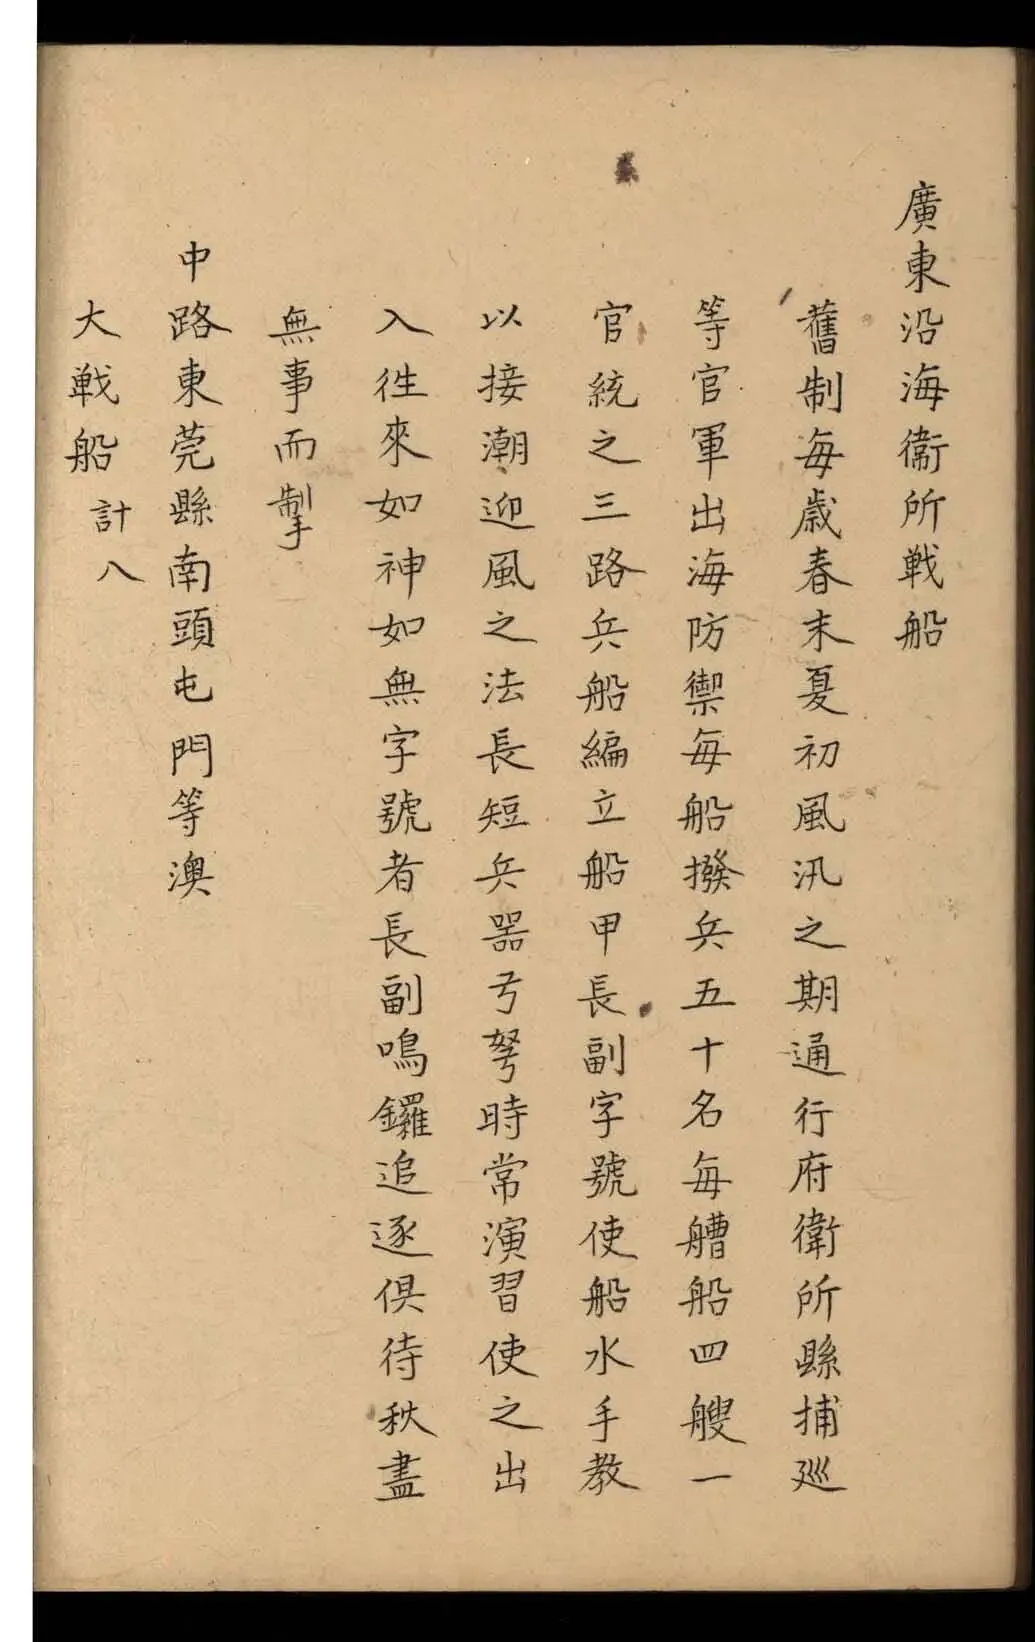 廣東沿海衞所戦船
舊制每歲春末夏初風汛之期通行府衛所縣捕廵
等官軍出海防禦每船撥兵五十名每艚船四艘一
官統之三路兵船編立船甲長副字號使船水手教
以接潮迎風之法長短兵器弓弩時常演習使之出
入徃來如神如無字號者長副鳴鑼追逐俱待秋盡
無事而掣
中路東莞縣南頭屯門等澳
大戦船計八